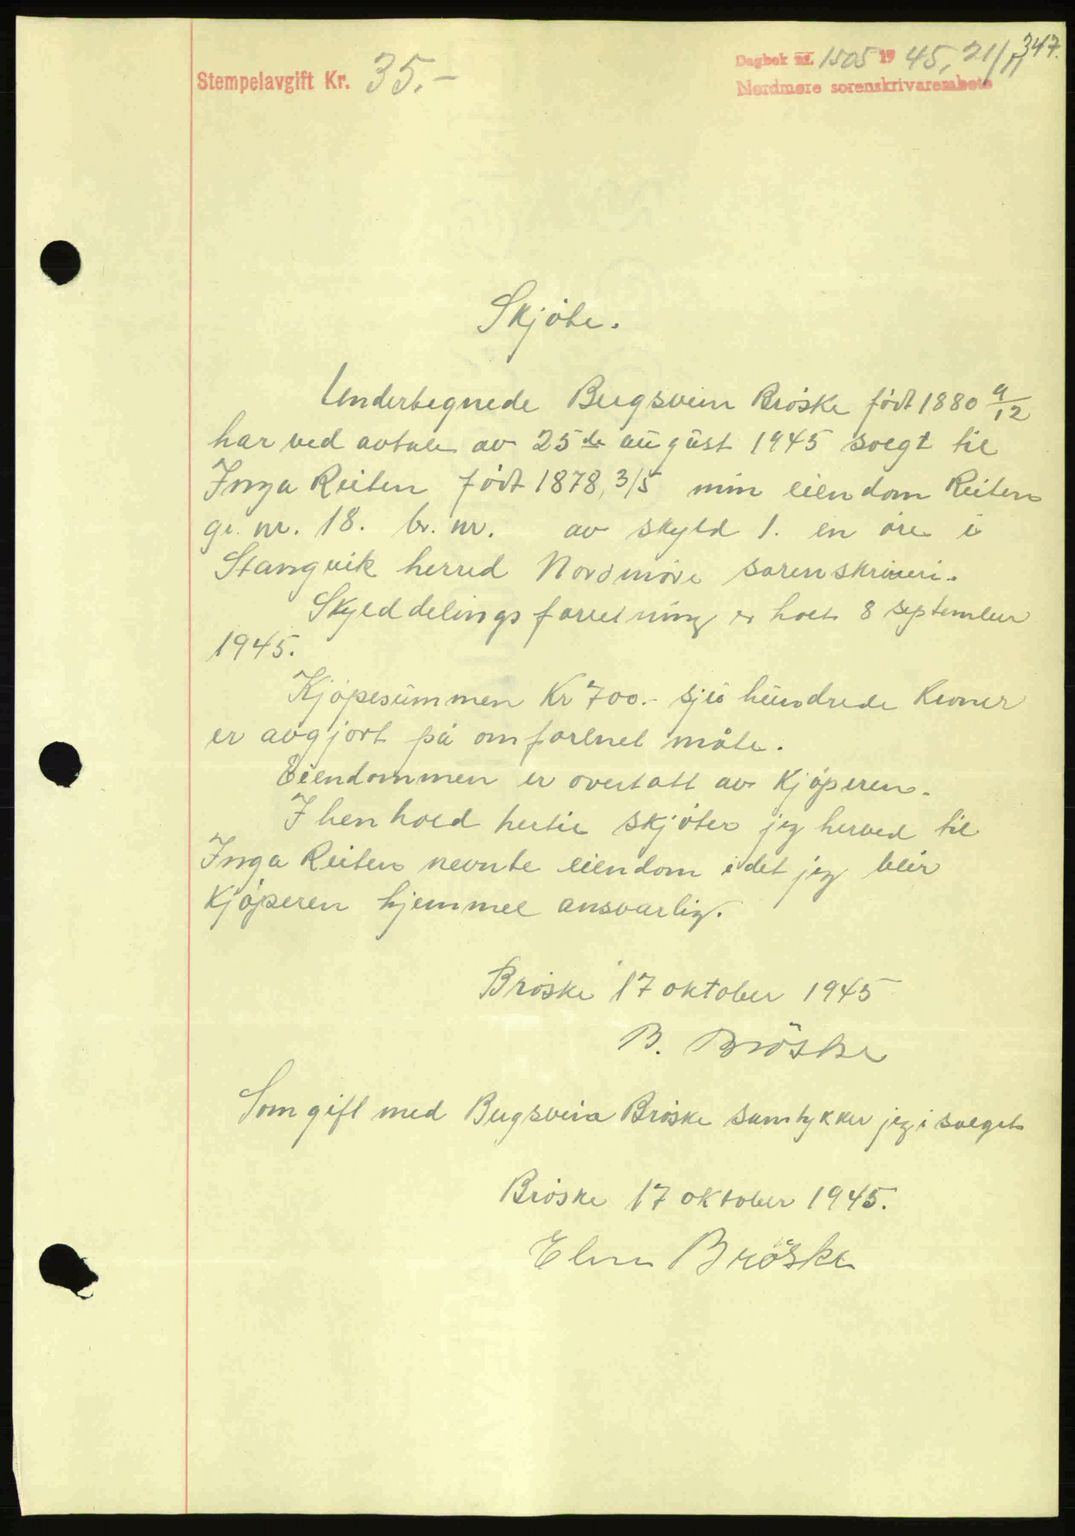 347.
Stempelavgift Kr. 35.-
Dagbok nr. 1505 1945, 21/11
Nordmøre sorenskrivarembete
Skjöte.
Undertegnede Bugsvein Bröske födt 1880 9/12
har ved avtale av 25de august 1945 solgt til
Inga Reiten födt 1878, 3/5 min eiendom Reiten
gr. nr. 18. br. nr. av skyld 1. en öre i
Stangvik herred Nordmöre sorenskriveri.
Skylddelingsforretning er holt 8 september
1945.
Kjöpesummen Kr 700.- sju hundrede kroner
er avgjort på omforenet måte.
Eiendommen er overtatt av kjöperen.
I henhold hertil skjöter jeg herved til
Inga Reiten nevnte eiendom idet jeg blir
kjöperen hjemmel ansvarlig.
Bröske 17 oktober 1945
B. Bröske
Som gift med Bugsvein Bröske samtykker jeg i salget
Bröske 17 oktober 1945.
Bröske